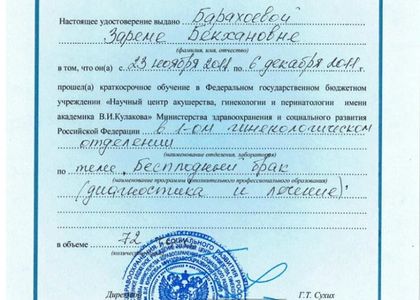 Настоящее удостоверение выдано Барахоевой
Зареме Бекхановне
(фамилия, имя, отчество)
в том, что он(а) с 23 ноября 2011 по 6 декабря 2011
прошел(а) краткосрочное обучение в Федеральном государственном бюджетном
учреждении «Научный центр акушерства, гинекологии и перинатологии имени
академика В.И.Кулакова» Министерства здравоохранения и социального развития
Российской Федерации в 1-ом гинекологическом
отделении
(наименование отделения, лаборатории)
по теме „Бесплодный брак
(наименование программы дополнительного профессионального образования)
(диагностика и лечение)"
в объеме 72
Г.Т. Сухих